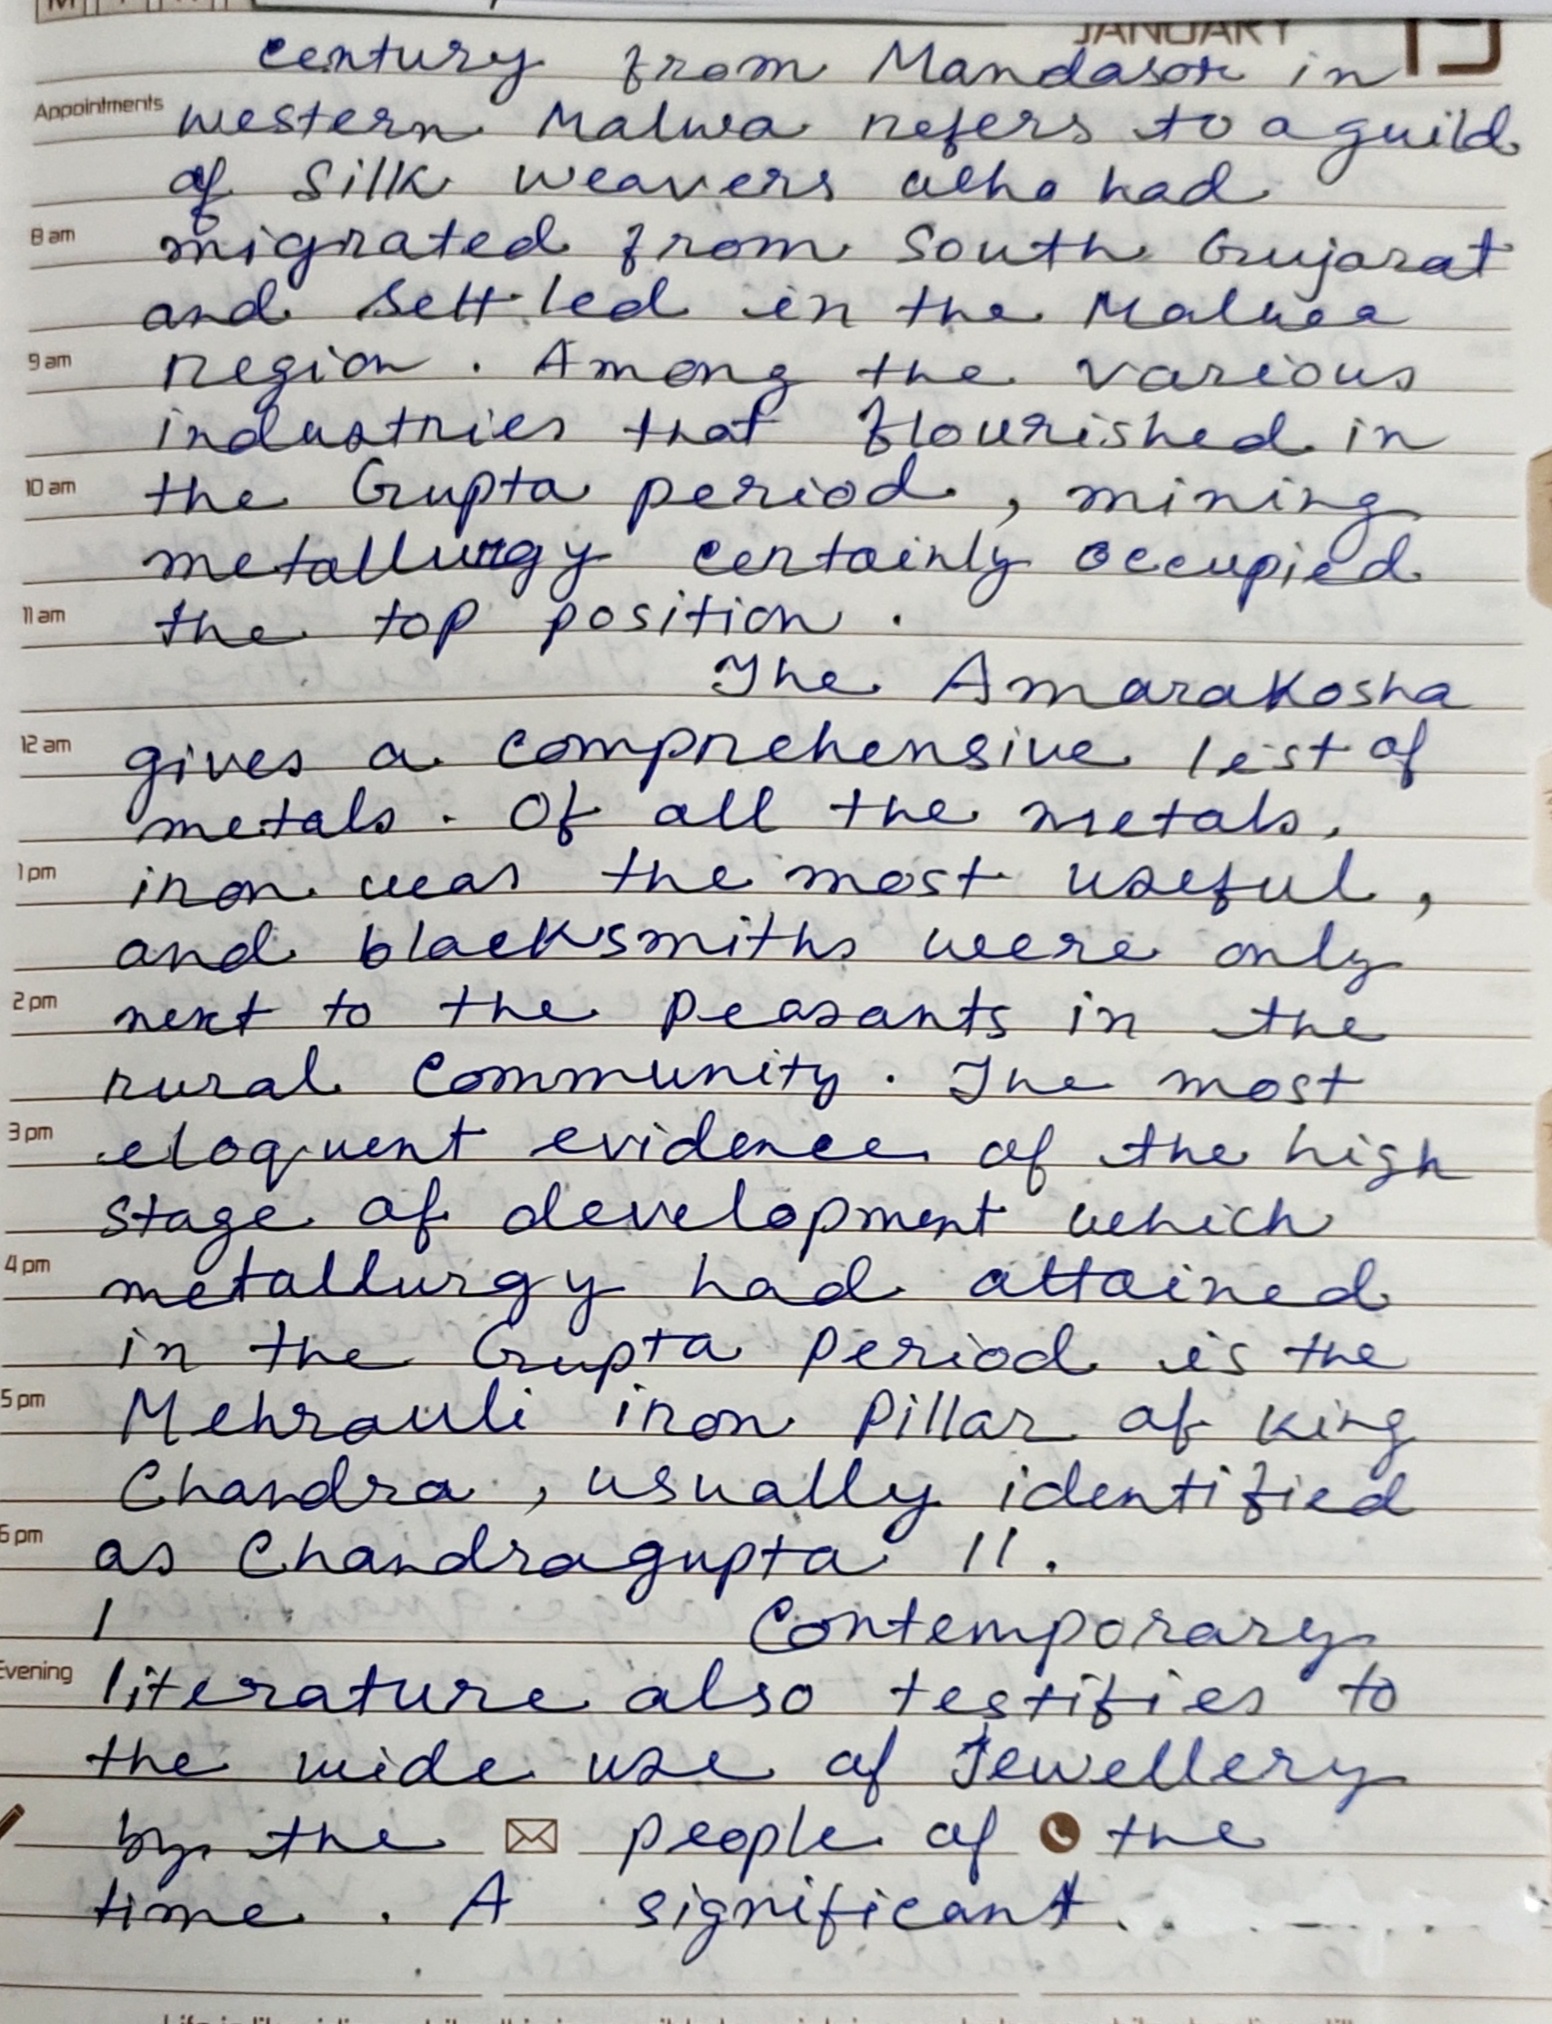 JANUARY 19
century from Mandasor in
Appointments western Malwa refers to a guild
of silk weavers who had
8 am migrated from South Gujarat
and settled in the Malwa
9 am region. Among the various
industries that flourished in
10 am the Gupta period, mining
metallurgy certainly occupied
11 am the top position.
The Amarakosha
12 am gives a comprehensive list of
metals. Of all the metals,
1 pm iron was the most useful,
and blacksmiths were only
2 pm next to the peasants in the
rural community. The most
3 pm eloquent evidence of the high
stage of development which
4 pm metallurgy had attained
in the Gupta period is the
5 pm Mehrauli iron pillar of King
Chandra, usually identified
6 pm as Chandragupta II.
Contemporary
Evening literature also testifies to
the wide use of Jewellery
by the people of the
time. A significant